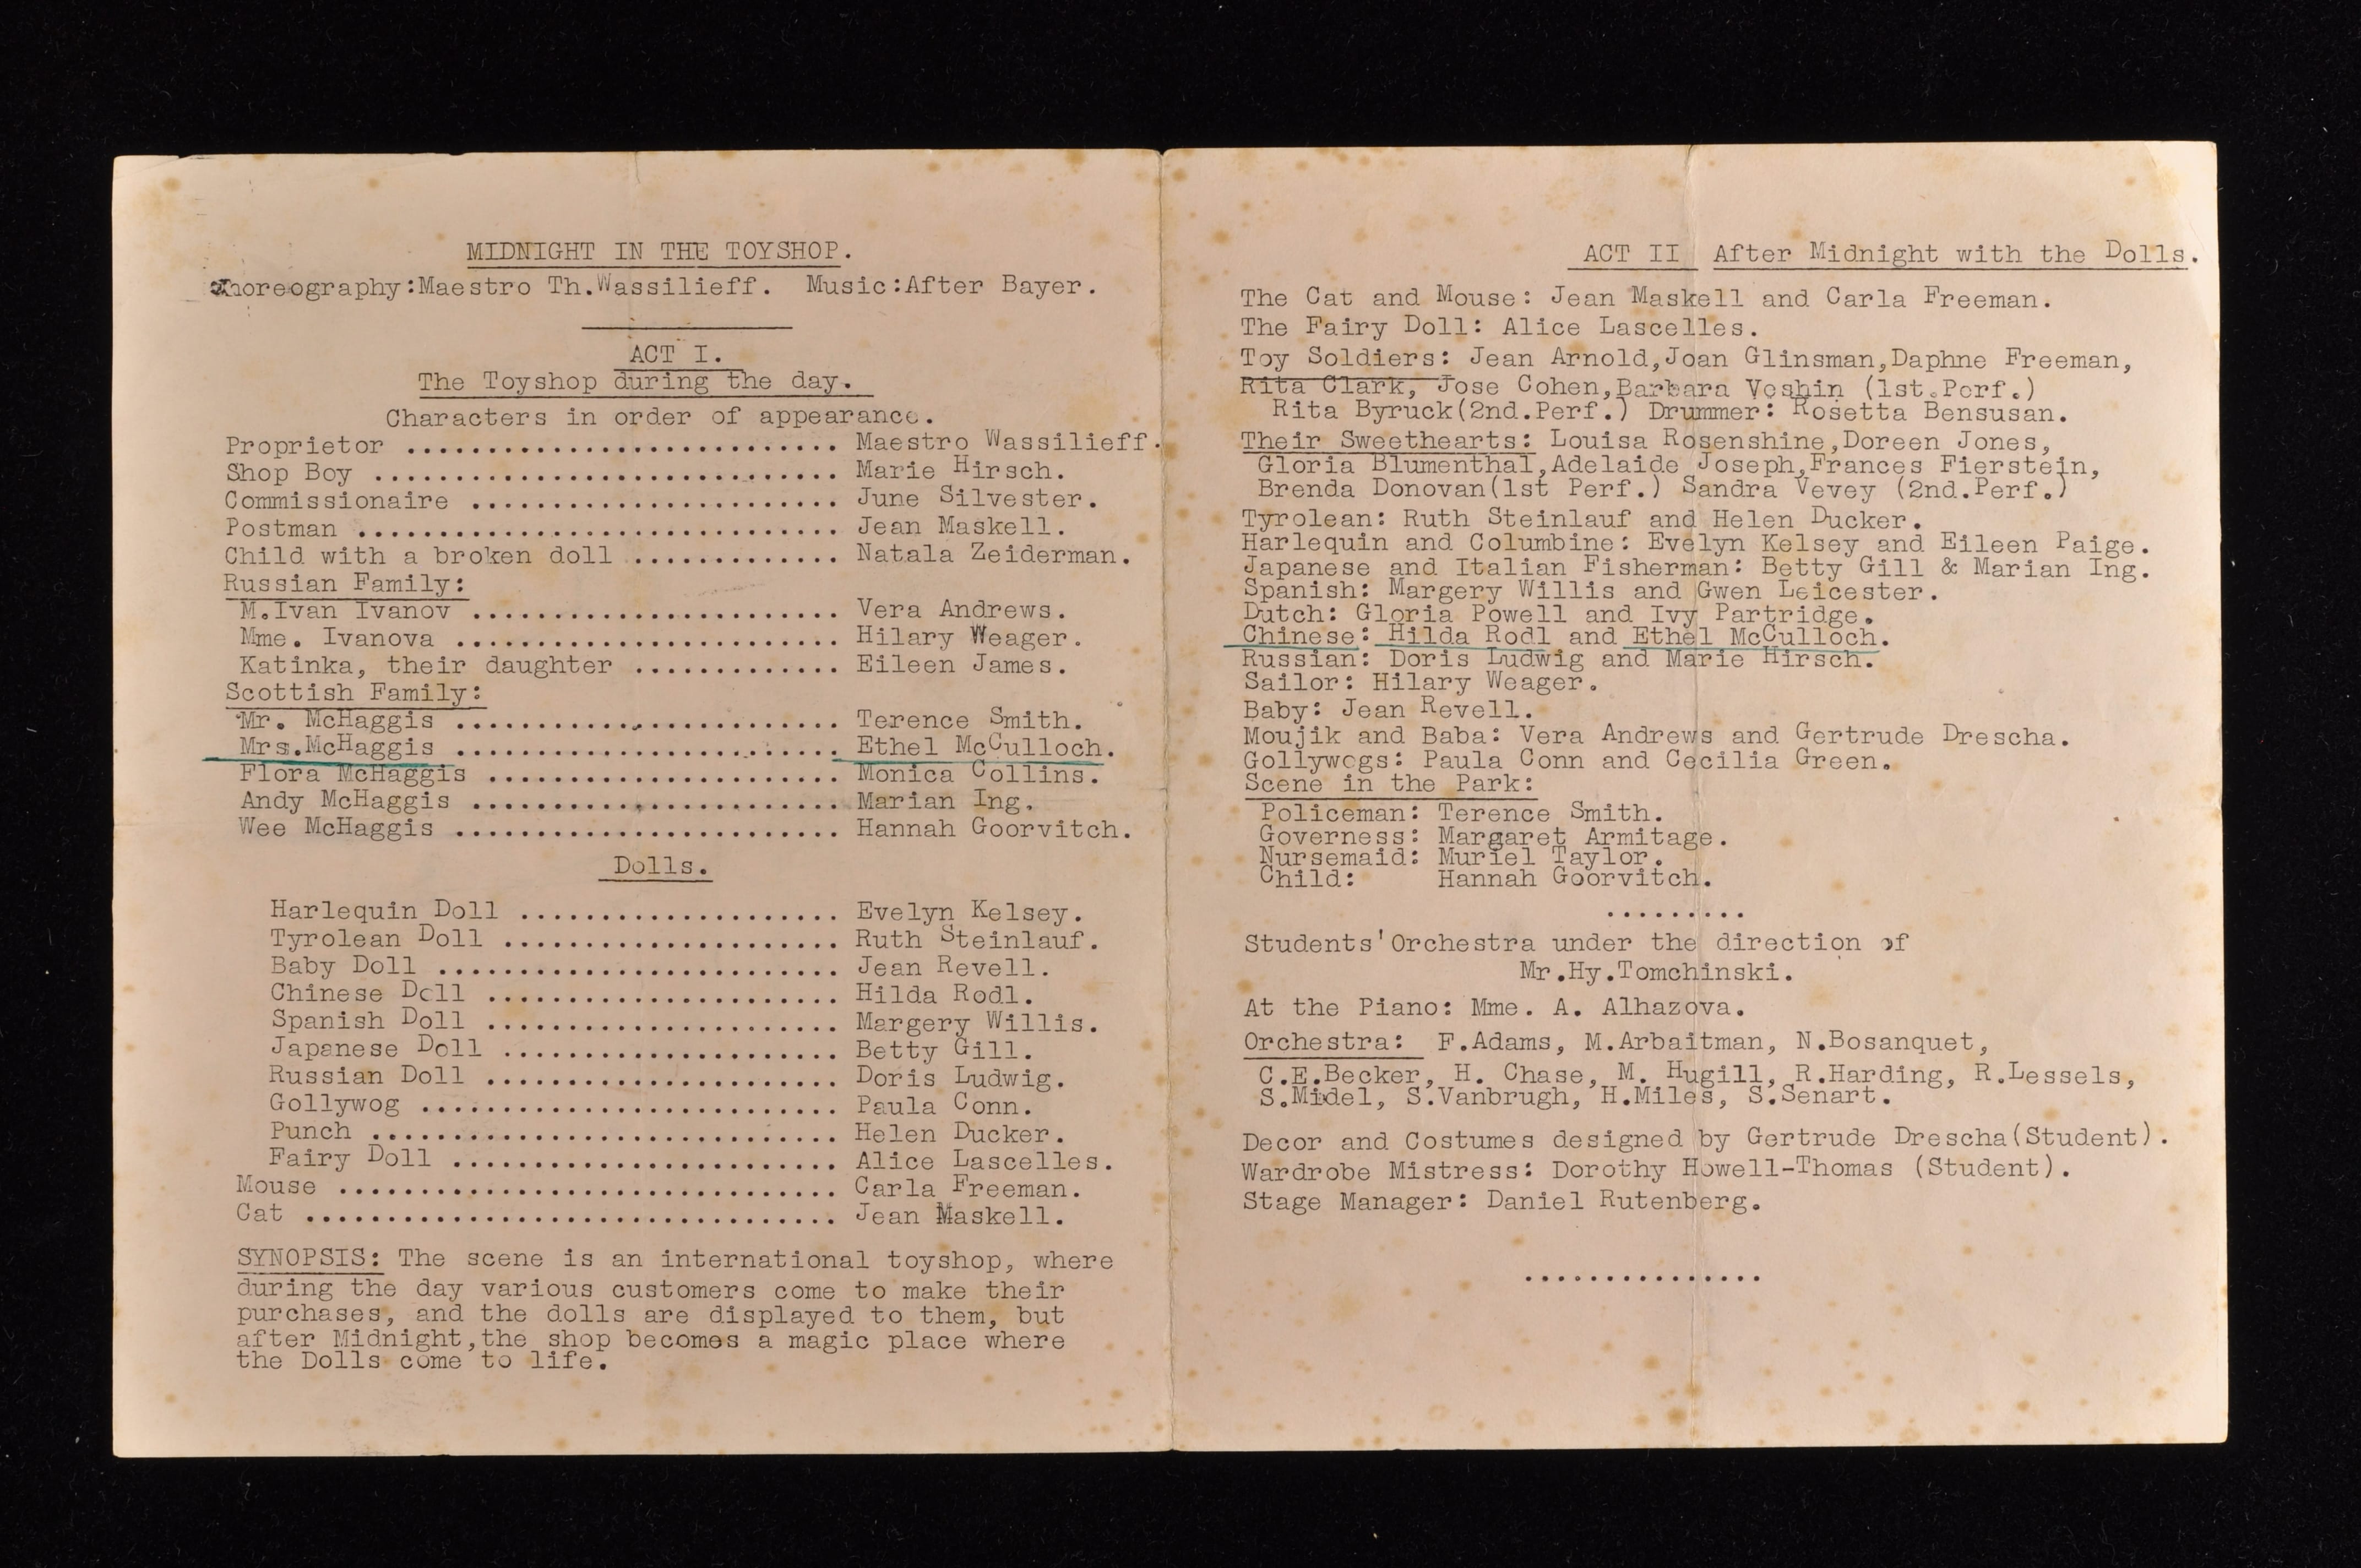 MIDNIGHT IN THE TOYSHOP.
Choreography:Maestro Th.Wassilieff. Music:After Bayer.
ACT I.
The Toyshop during the day.
Characters in order of appearance.
Proprietor ........................... Maestro Wassilieff.
Shop Boy ............................. Marie Hirsch.
Commissionaire ....................... June Silvester.
Postman .............................. Jean Maskell.
Child with a broken doll ............. Natala Zeiderman.
Russian Family:
M.Ivan Ivanov ....................... Vera Andrews.
Mme. Ivanova ........................ Hilary Weager.
Katinka, their daughter ............. Eileen James.
Scottish Family:
Mr. McHaggis ........................ Terence Smith.
Mrs.McHaggis ........................ Ethel McCulloch.
Flora McHaggis ...................... Monica Collins.
Andy McHaggis ....................... Marian Ing.
Wee McHaggis ........................ Hannah Goorvitch.
Dolls.
Harlequin Doll .................... Evelyn Kelsey.
Tyrolean Doll ..................... Ruth Steinlauf.
Baby Doll ......................... Jean Revell.
Chinese Doll ...................... Hilda Rodl.
Spanish Doll ...................... Margery Willis.
Japanese Doll ..................... Betty Gill.
Russian Doll ...................... Doris Ludwig.
Gollywog .......................... Paula Conn.
Punch ............................. Helen Ducker.
Fairy Doll ........................ Alice Lascelles.
Mouse ............................... Carla Freeman.
Cat ................................. Jean Maskell.
SYNOPSIS: The scene is an international toyshop, where
during the day various customers come to make their
purchases, and the dolls are displayed to them, but
after Midnight,the shop becomes a magic place where
the Dolls come to life.
ACT II After Midnight with the Dolls.
The Cat and Mouse: Jean Maskell and Carla Freeman.
The Fairy Doll: Alice Lascelles.
Toy Soldiers: Jean Arnold,Joan Glinsman,Daphne Freeman,
Rita Clark, Jose Cohen,Barbara Voshin (1st.Perf.)
Rita Byruck(2nd.Perf.) Drummer: Rosetta Bensusan.
Their Sweethearts: Louisa Rosenshine,Doreen Jones,
Gloria Blumenthal,Adelaide Joseph,Frances Fierstein,
Brenda Donovan(1st Perf.) Sandra Vevey (2nd.Perf.)
Tyrolean: Ruth Steinlauf and Helen Ducker.
Harlequin and Columbine: Evelyn Kelsey and Eileen Paige.
Japanese and Italian Fisherman: Betty Gill & Marian Ing.
Spanish: Margery Willis and Gwen Leicester.
Dutch: Gloria Powell and Ivy Partridge.
Chinese: Hilda Rodl and Ethel McCulloch.
Russian: Doris Ludwig and Marie Hirsch.
Sailor: Hilary Weager.
Baby: Jean Revell.
Moujik and Baba: Vera Andrews and Gertrude Drescha.
Gollywogs: Paula Conn and Cecilia Green.
Scene in the Park:
Policeman: Terence Smith.
Governess: Margaret Armitage.
Nursemaid: Muriel Taylor.
Child: Hannah Goorvitch.
.........
Students'Orchestra under the direction of
Mr.Hy.Tomchinski.
At the Piano: Mme. A. Alhazova.
Orchestra: F.Adams, M.Arbaitman, N.Bosanquet,
C.E.Becker, H. Chase, M. Hugill, R.Harding, R.Lessels,
S.Midel, S.Vanbrugh, H.Miles, S.Senart.
Decor and Costumes designed by Gertrude Drescha(Student).
Wardrobe Mistress: Dorothy Howell-Thomas (Student).
Stage Manager: Daniel Rutenberg.
...............